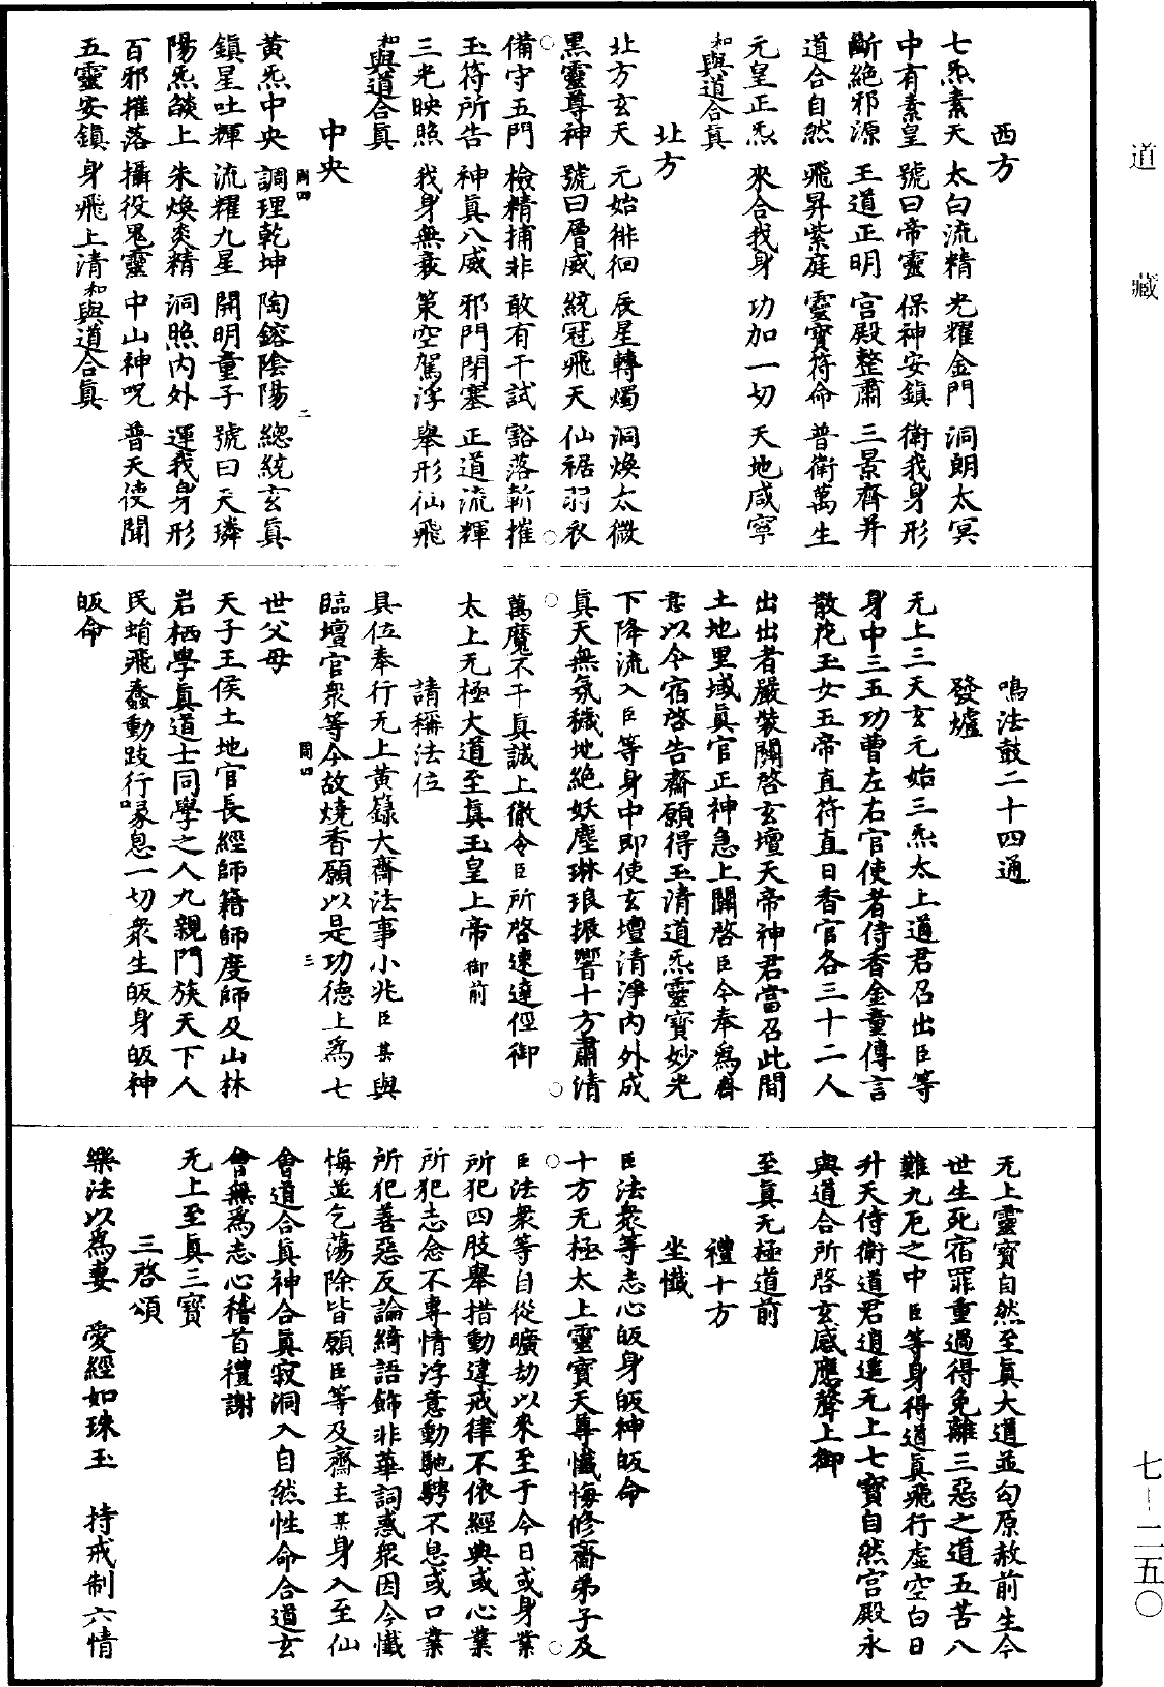 道藏
西方
七炁素天　太白流精　光耀金門　洞朗太冥
中有素皇　號曰帝靈　保神安鎮　衛我身形
斷絕邪源　王道正明　宮殿整肅　三景齊并
道合自然　飛昇紫庭　靈寶符命　普衛萬生
元皇正炁　來合我身　功加一切　天地咸寧
和與道合真
北方
北方玄天　元始徘徊　辰星轉燭　洞煥太微
黑靈尊神　號曰層威　統冠飛天　仙裾羽衣
備守五門　檢精捕非　敢有干試　豁落斬摧
玉符所告　神真八威　邪門閉塞　正道流輝
三光映照　我身無衰　策空駕浮　舉形仙飛
和與道合真
中央
周四
二
黃炁中央　調理乾坤　陶鎔陰陽　總統玄真
鎮星吐輝　流耀九星　開明童子　號曰天璘
陽炁燄上　朱煥炎精　洞照內外　運我身形
百邪摧落　攝役鬼靈　中山神呪　普天使聞
五靈安鎮　身飛上清　和與道合真
鳴法鼓二十四通
發爐
无上三天玄元始三炁太上道君召出臣等
身中三五功曹左右官使者侍香金童傳言
散花玉女五帝直符直日香官各三十二人
出出者嚴裝關啓玄壇天帝神君當召此間
土地里域真官正神急上關啓臣今奉爲齋
意以今宿啓告齋願得玉清道炁靈寶妙光
下降流入臣等身中即使玄壇清淨內外成
真天無氛穢地絕妖塵琳琅振響十方肅清
萬魔不干真誠上徹令臣所啓速達徑御
太上无極大道至真玉皇上帝御前
請稱法位
具位奉行无上黃籙大齋法事小兆臣某與
臨壇官衆等今故燒香願以是功德上爲七
周四
三
世父母
天子王侯土地官長經師籍師度師及山林
岩栖學真道士同學之人九親門族天下人
民蜎飛蠢動跂行喙息一切衆生皈身皈神
皈命
无上靈寶自然至真大道並勾原赦前生今
世生死宿罪重過得免離三惡之道五苦八
難九厄之中臣等身得道真飛行虛空白日
升天侍衛道君逍遥无上七寶自然宮殿永
與道合所啓玄感應聲上御
至真无極道前
禮十方
坐懺
臣法衆等志心皈身皈神皈命
十方无極太上靈寶天尊懺悔修齋弟子及
臣法衆等自從曠劫以來至于今日或身業
所犯四肢舉措動違戒律不依經典或心業
所犯志念不專情浮意動馳騁不息或口業
所犯善惡反論綺語飾非華詞惑衆因今懺
悔並乞蕩除皆願臣等及齋主某身入至仙
會道合真神合真寂洞入自然性命合道玄
會無爲志心稽首禮謝
无上至真三寶
三啓頌
樂法以爲妻　愛經如珠玉　持戒制六情
七—二五〇